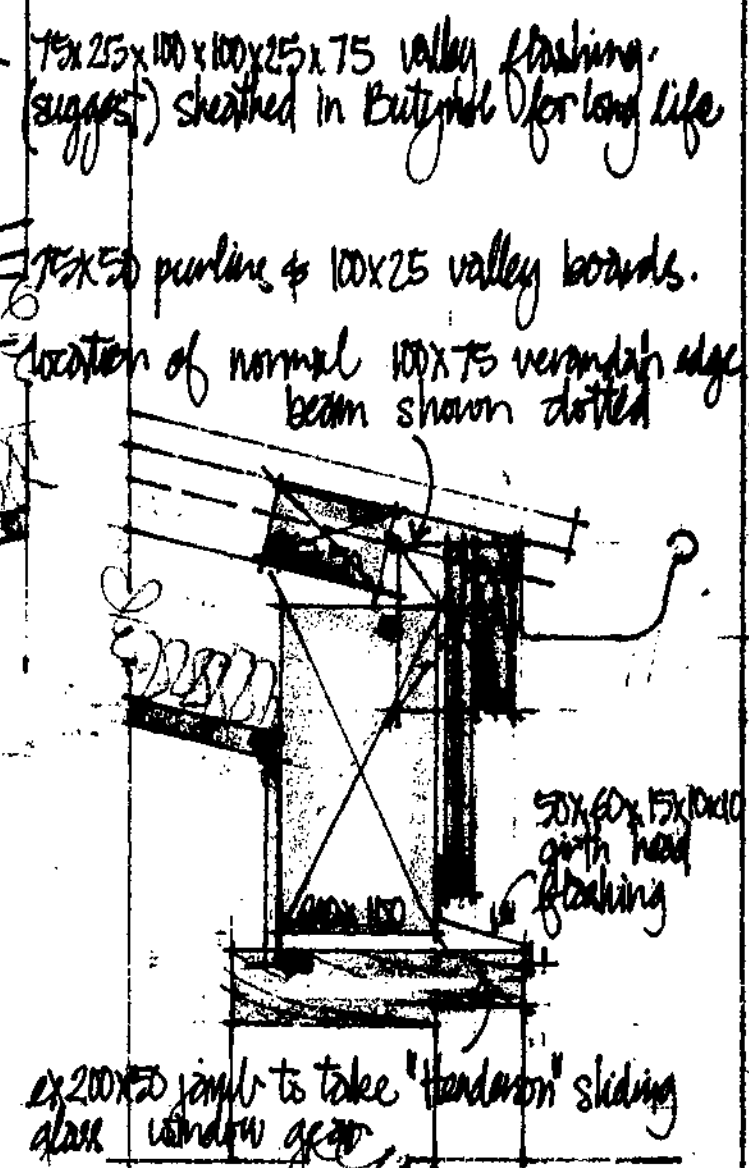 75x25x100x100x25x75 valley flashing.
(suggest) sheathed in Butynol for long life
75x50 purlins & 100x25 valley boards.
location of normal 100x75 verandah edge
beam shown dotted
50x60x15x10x10
girth head
flashing
x 100
ex 200x50 jamb to take "Henderson" sliding
glass window gear